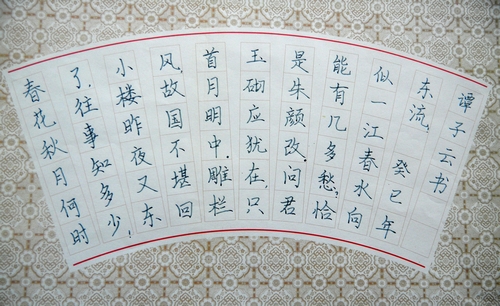 春花秋月何时
了,往事知多少!
小楼昨夜又东
风,故国不堪回
首月明中.雕栏
玉砌应犹在,只
是朱颜改.问君
能有几多愁?恰
似一江春水向
东流. 癸巳年
谭子云书